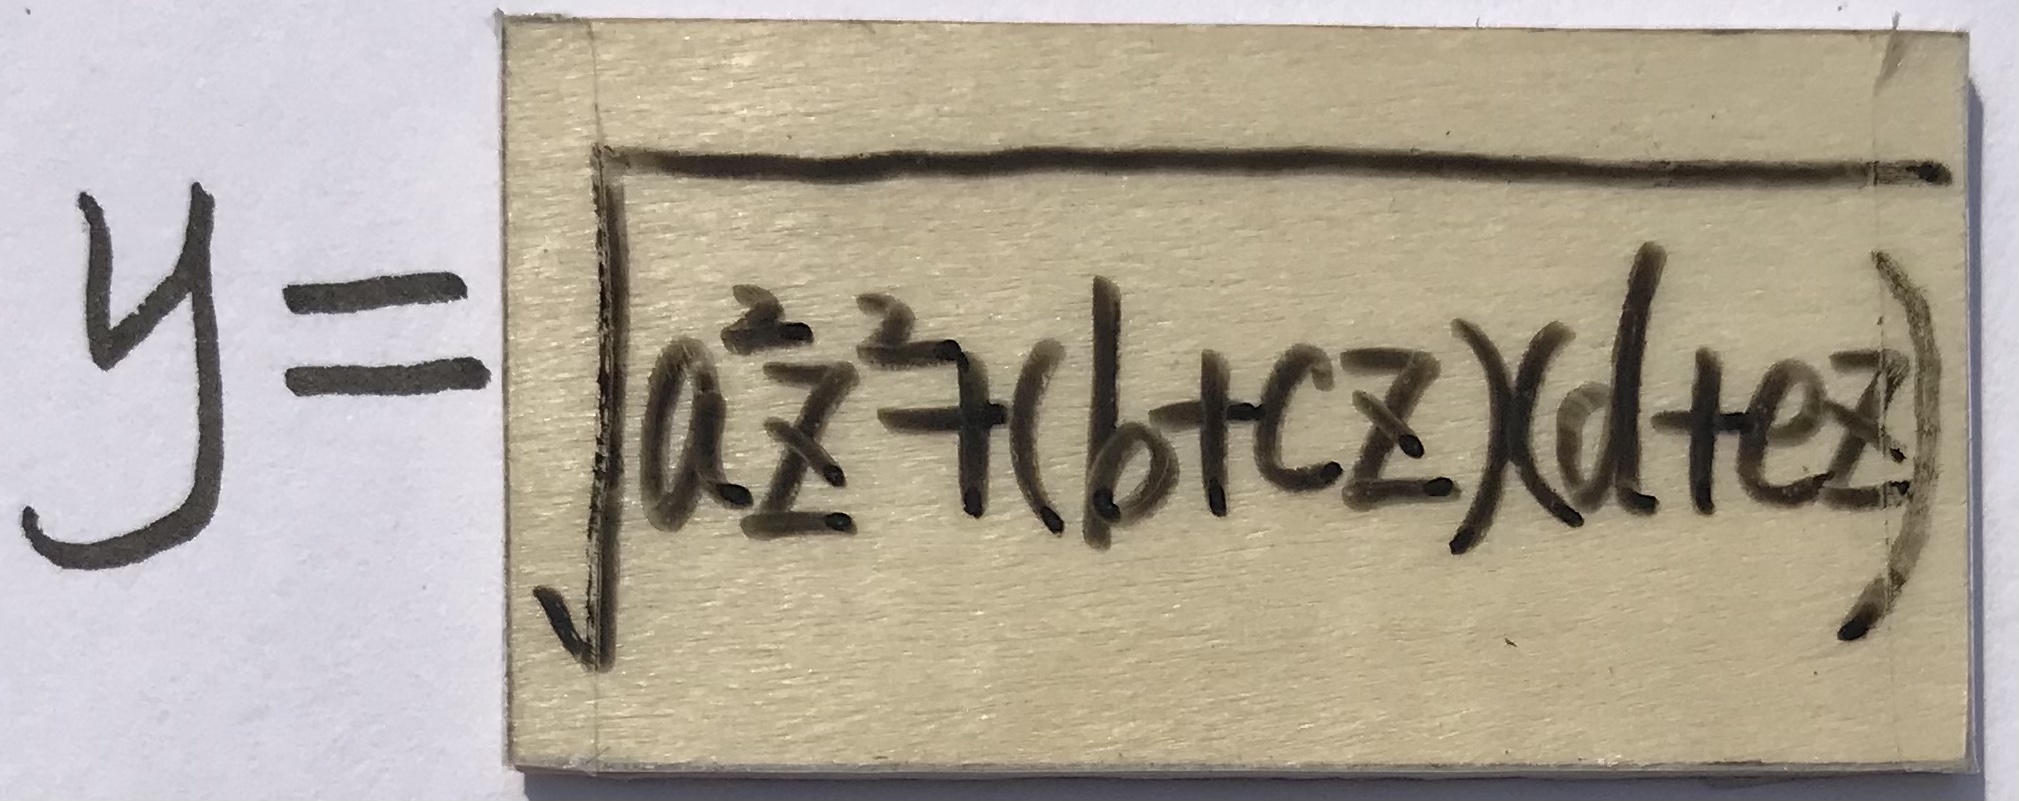 y=√(a²z²+(b+cz)(d+ez))